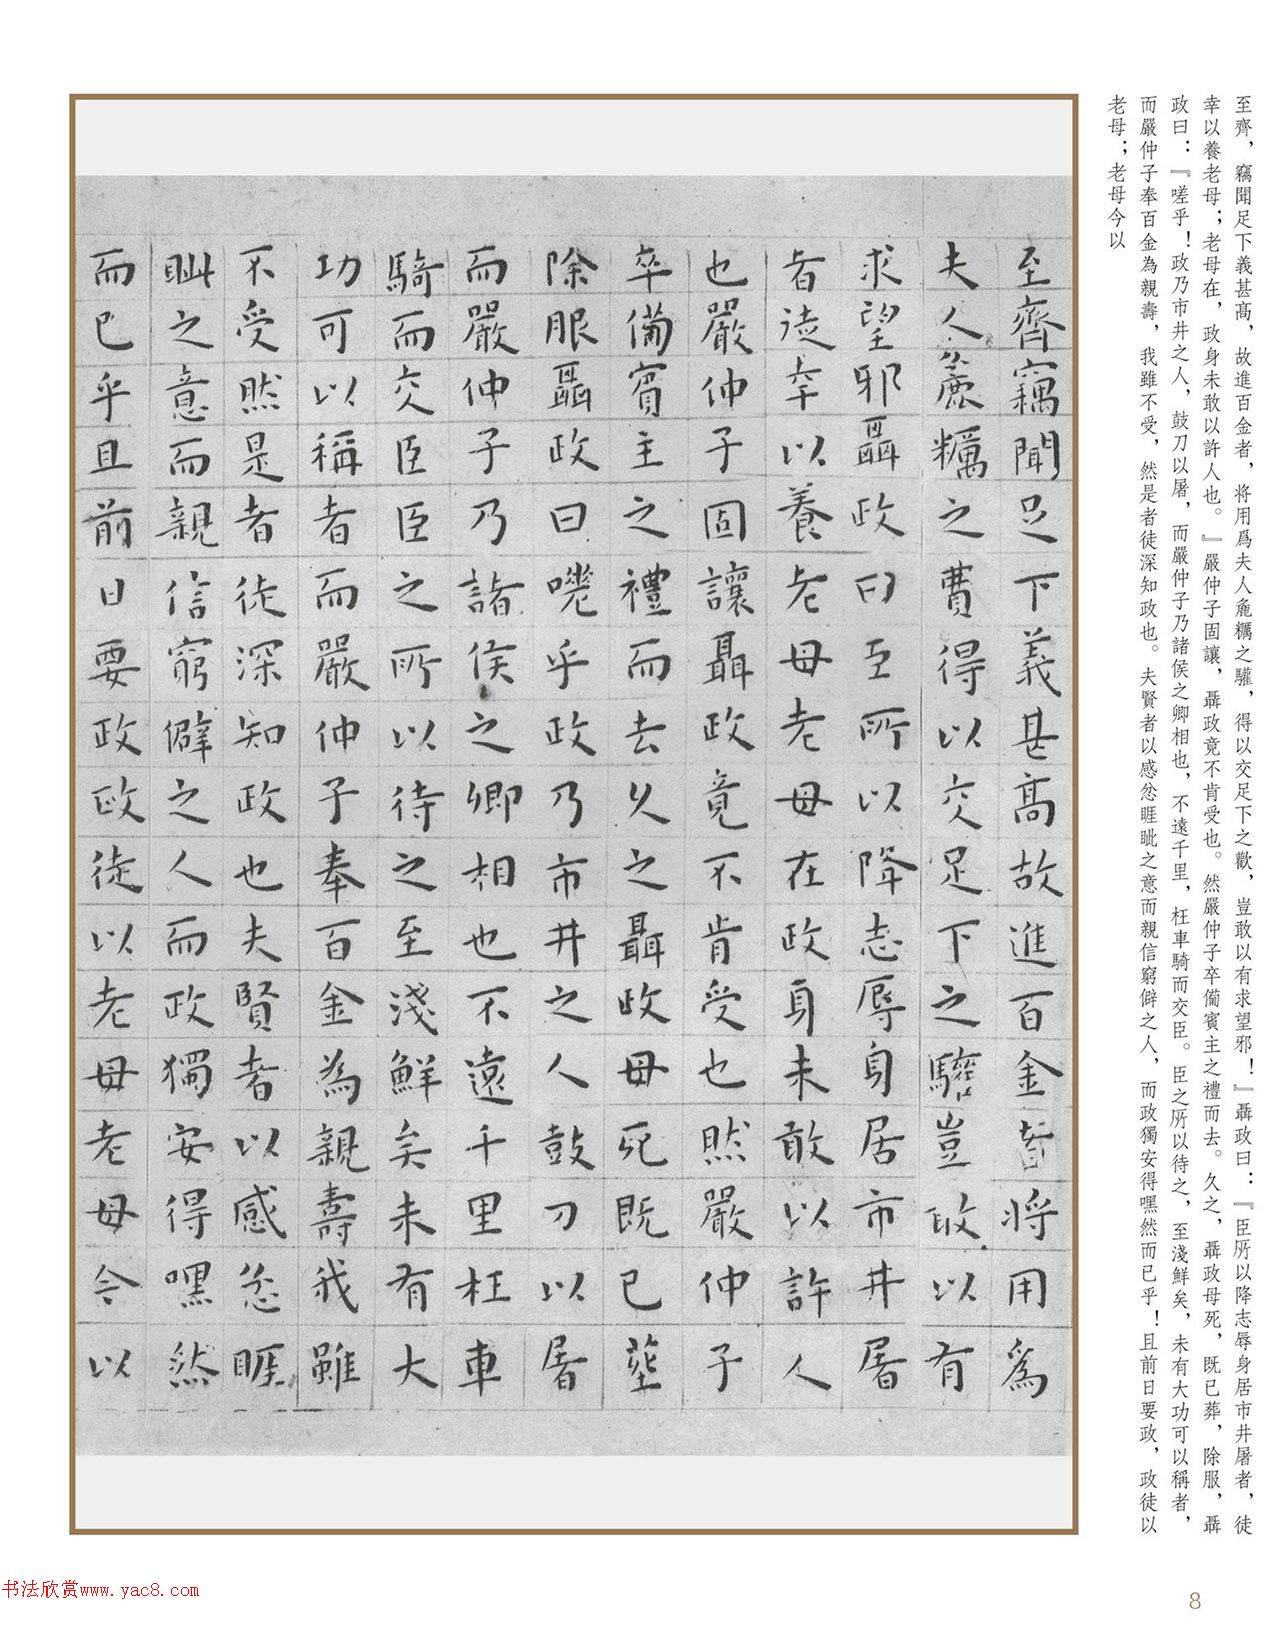 至齊，竊聞足下義甚高，故進百金者，將用爲夫人麁糲之驩，得以交足下之歡，豈敢以有求望邪！』聶政曰：『臣所以降志辱身居市井屠者，徒
幸以養老母；老母在，政身未敢以許人也。』嚴仲子固讓，聶政竟不肯受也。然嚴仲子卒備賓主之禮而去。久之，聶政母死，既已葬，除服，聶
政曰：『嗟乎！政乃市井之人，鼓刀以屠，而嚴仲子乃諸侯之卿相也，不遠千里，枉車騎而交臣。臣之所以待之，至淺鮮矣，未有大功可以稱者，
而嚴仲子奉百金為親壽，我雖不受，然是者徒深知政也。夫賢者以感忿睚眦之意而親信窮僻之人，而政獨安得嘿然而已乎！且前日要政，政徒以
老母；老母今以
至齊竊聞足下義甚高故進百金者將用為
夫人麤糲之費得以交足下之驩豈敢以有
求望邪聶政曰臣所以降志辱身居市井屠
者徒幸以養老母老母在政身未敢以許人
也嚴仲子固讓聶政竟不肯受也然嚴仲子
卒備賓主之禮而去久之聶政母死既已塟
除服聶政曰嗟乎政乃市井之人鼓刀以屠
而嚴仲子乃諸侯之卿相也不遠千里枉車
騎而交臣臣之所以待之至淺鮮矣未有大
功可以稱者而嚴仲子奉百金為親壽我雖
不受然是者徒深知政也夫賢者以感忿睚
眦之意而親信窮僻之人而政獨安得嘿然
而已乎且前日要政政徒以老母老母今以
书法欣赏www.yac8.com
8